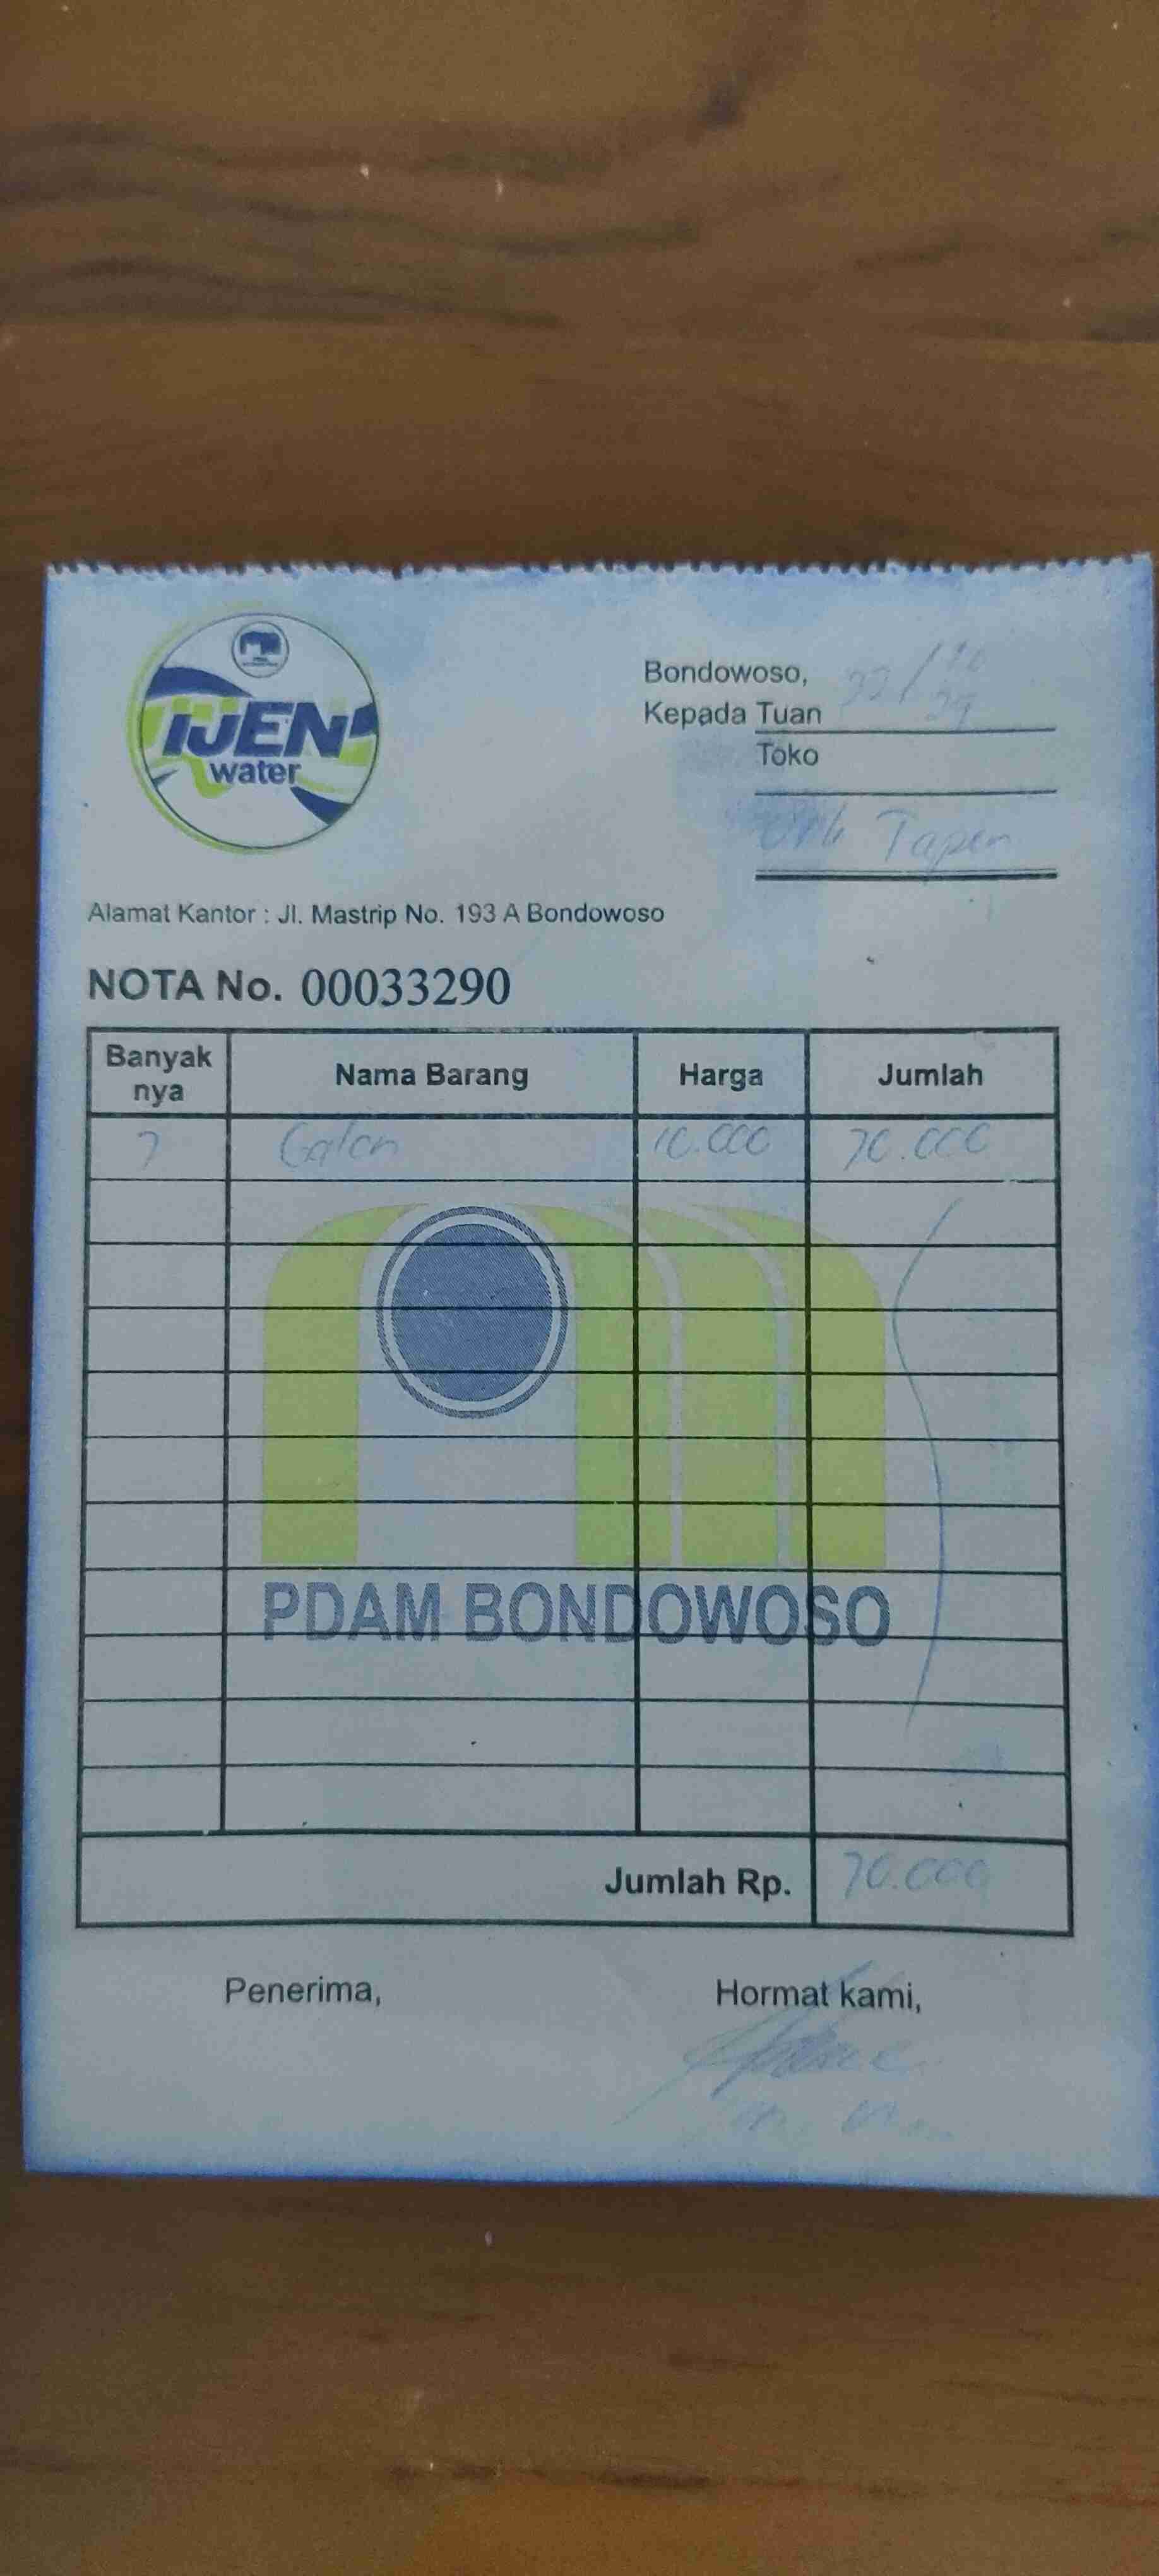 IJEN
water
Bondowoso,
Kepada Tuan
Toko
Tapen
Alamat Kantor : Jl. Mastrip No. 193 A Bondowoso
NOTA No. 00033290
Banyak nya Nama Barang Harga Jumlah
7 Galon 10.000 70.000
PDAM BONDOWOSO
Jumlah Rp. 70.000
Penerima, Hormat kami,